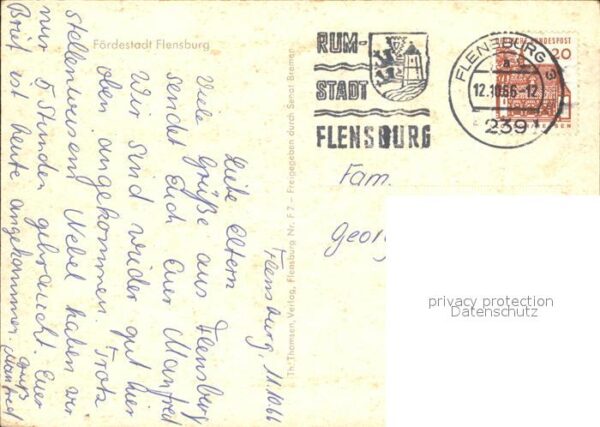 Fördestadt Flensburg
Flensburg, 11.10.66
Liebe Eltern
Viele Grüße aus Flensburg
sendet Euch Euer Manfred
Wir sind wieder gut hier
oben angekommen. Trotz
stellenweisem Nebel haben wir
nur 5 Stunden gebraucht. Euer
Brief ist heute angekommen
Gruß
Manfred
Th. Thomsen, Verlag, Flensburg Nr. F 7 – Freigegeben durch Senat Bremen
RUM-
STADT
FLENSBURG
FLENSBURG 3
a
12.10.66-12
239
BUNDESPOST
20
Fam.
Georg
privacy protection
Datenschutz